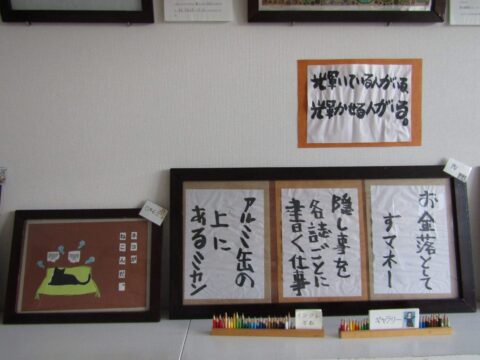 輝いている人がいる。
輝かせる人がいる。
お金落とて
すマネー
隠し事を
各誌ごとに
書く仕事
アルミ缶の
上に
あるミカン
ネコが
ギャラリー